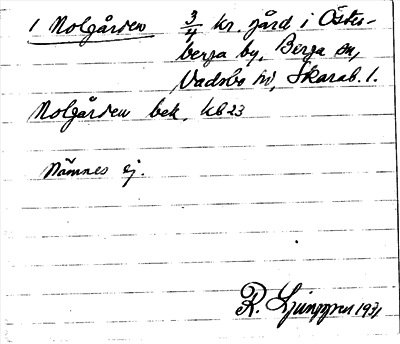 1 Nolgården 3/4 kr. gård i Öster-
berga by, Berga sn,
Vadsbo hd, Skarab. l.
Nolgården bek. kb 23
Nämnes ej.
R. Ljunggren 1931